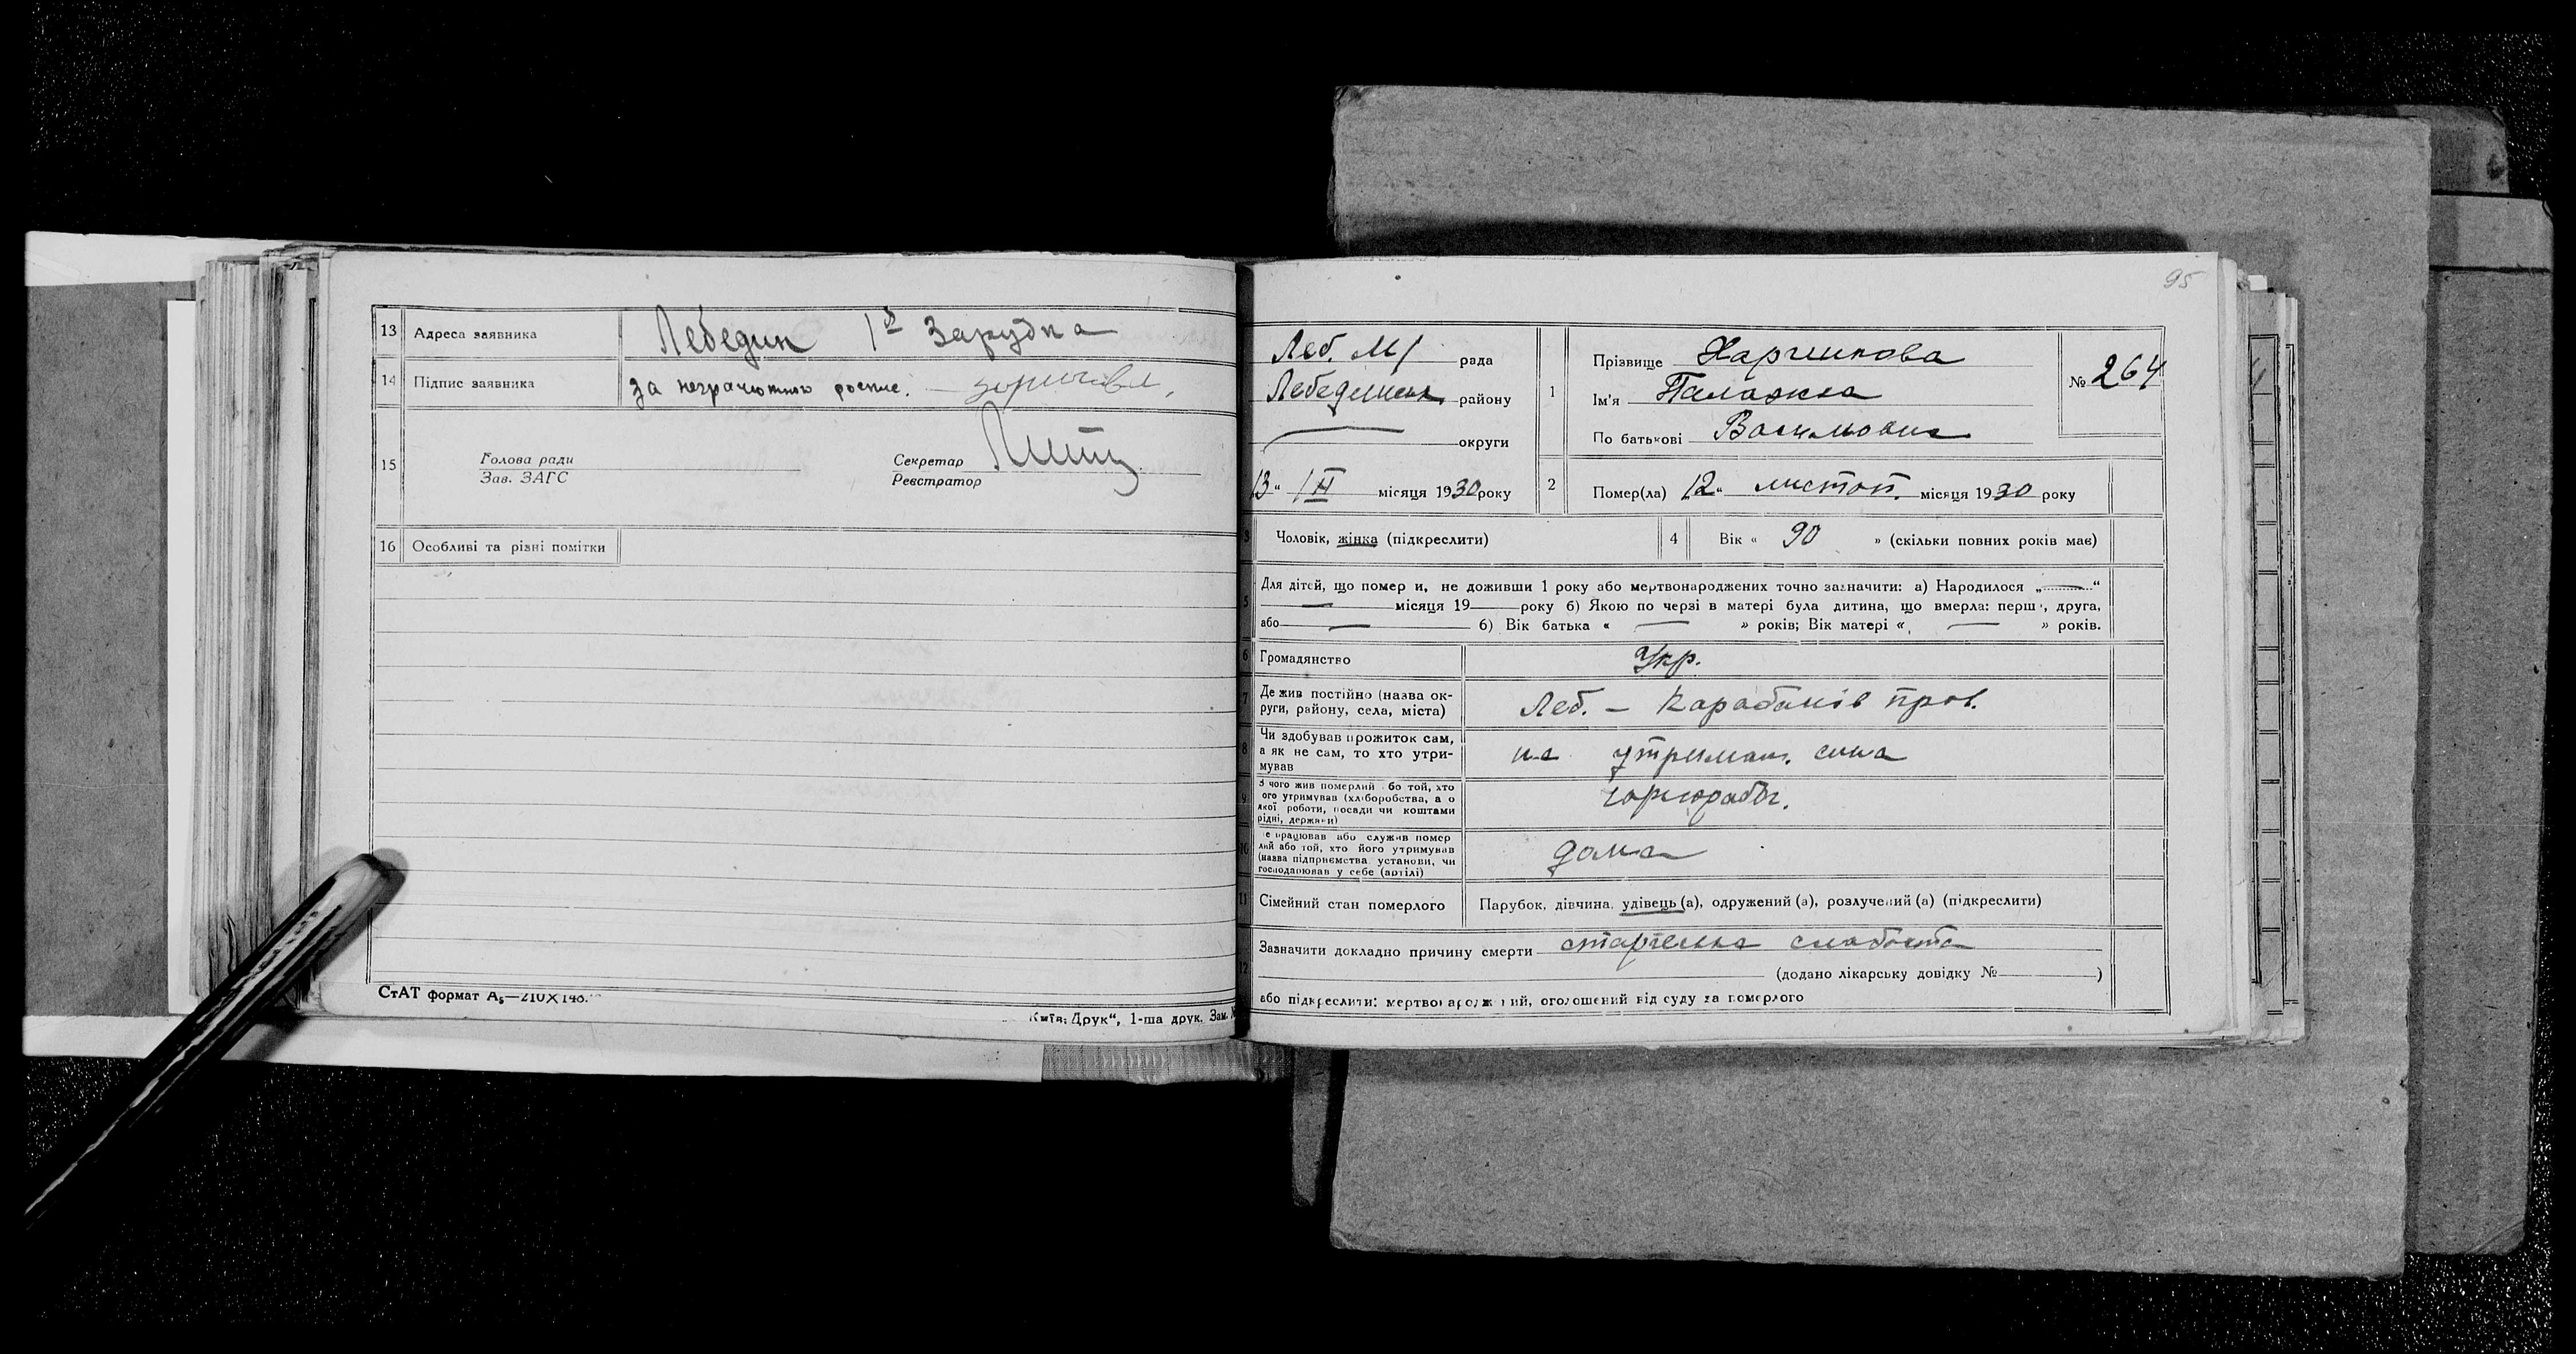 13 Адреса заявника Лебедин 1ª Зарудка
14 Підпис заявника за неграмотного роспис.
15 Голова ради
Зав. ЗАГС
Секретар
Реєстратор
16 Особливі та різні помітки
СтАТ формат А₅—210×148.
Київ-Друк“, 1-ша друк. Зам. №
95
Леб. М/ рада
Лебединськ. району
округи
13 “ /XI місяця 1930 року
1 Прізвище Харченкова
Ім'я Палажка
По батькові
№ 264
2 Помер(ла) 12 “ листоп. місяця 1930 року
3 Чоловік, жінка (підкреслити)
4 Вік « 90 » (скільки повних років має)
5 Для дітей, що помер и, не доживши 1 року або мертвонароджених точно зазначити: а) Народилося „ — “
— місяця 19 — року б) Якою по черзі в матері була дитина, що вмерла: перш , друга,
або — б) Вік батька « — » років; Вік матері « — » років.
6 Громадянство Укр.
7 Де жив постійно (назва ок-
руги, району, села, міста) Леб. – Карабанів пров.
8 Чи здобував прожиток сам,
а як не сам, то хто утри-
мував на утриман. сина
9 З чого жив померлий бо той, хто
ого утримував (хліборобства, а о
якої роботи, посади чи коштами
рідні, держави) чорнороб.
10 е працював або служив помер
лий або той, хто його утримував
(назва підприємства установи, чи
господарював у себе (артілі) дома
11 Сімейний стан померлого Парубок, дівчина, удівець (а), одружений (а), розлучений (а) (підкреслити)
12 Зазначити докладно причину смерти старческа слабость
(додано лікарську довідку № — )
або підкреслити: мертвонароджений, оголошений від суду за померлого